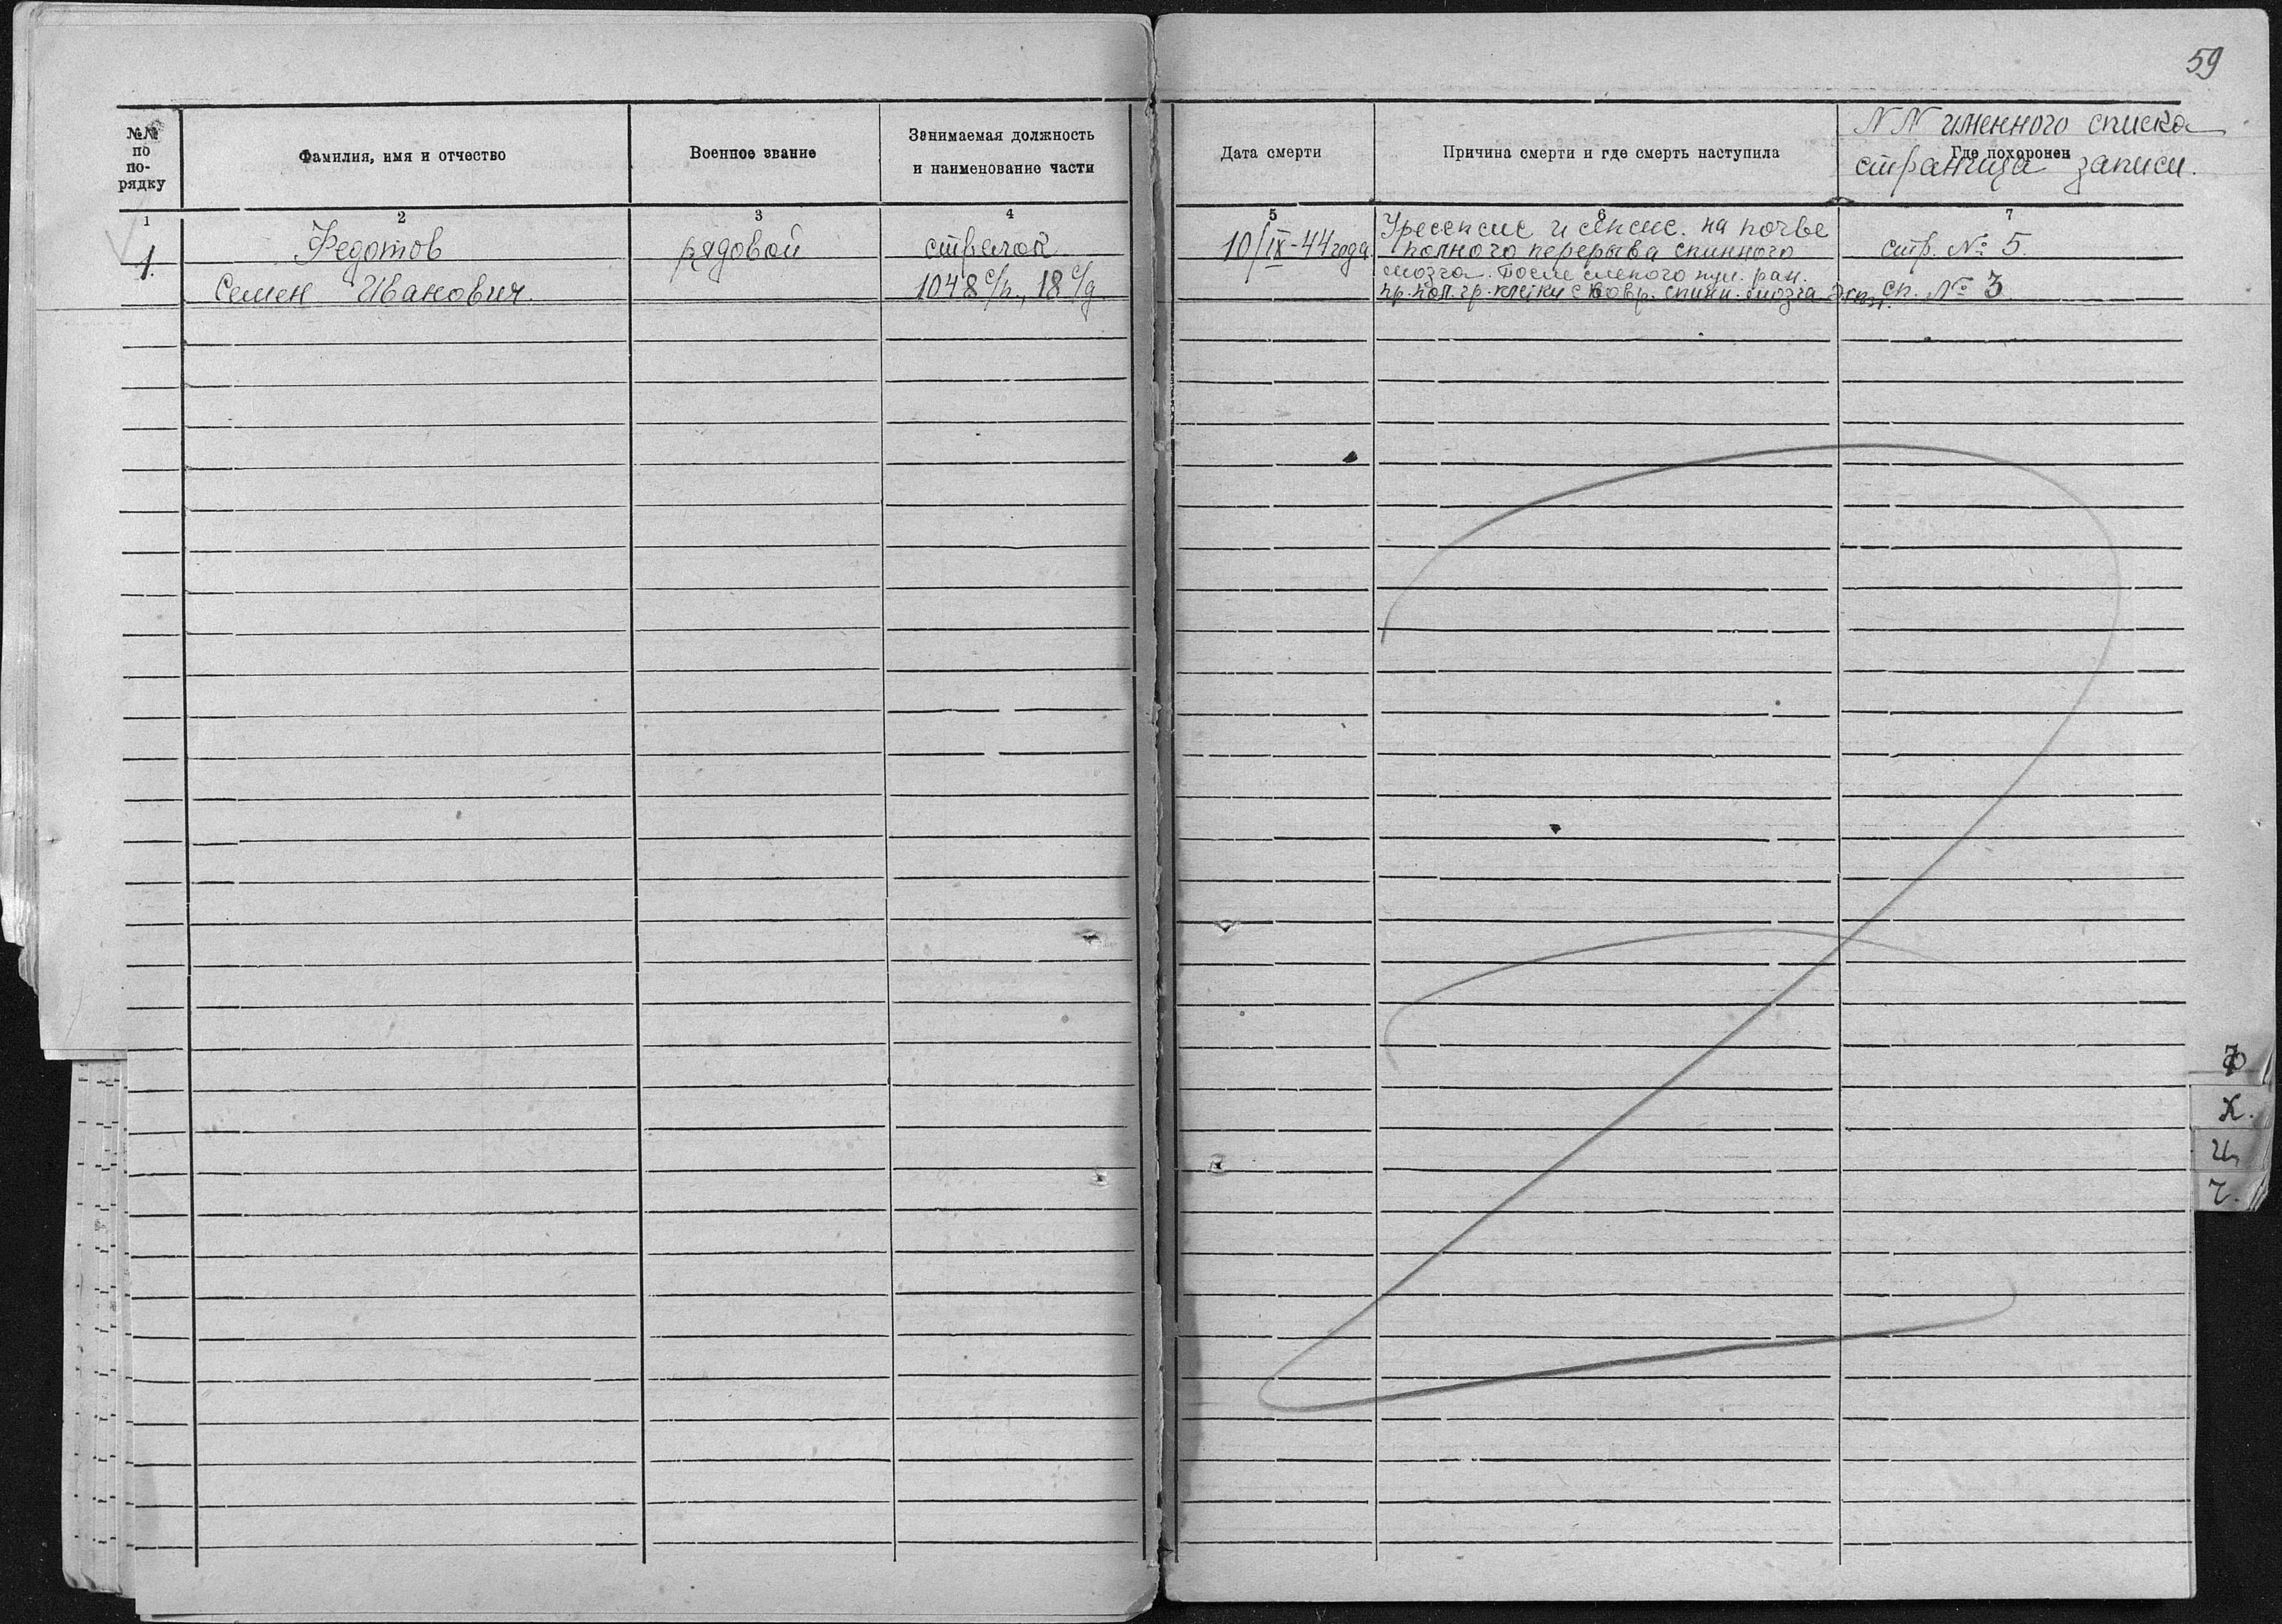 59
№№ по по-рядку
Фамилия, имя и отчество
Военное звание
Занимаемая должность
и наименование части
Дата смерти
Причина смерти и где смерть наступила
Где похоронен
NN именного списка
страница записи.
1 2 3 4 5 6 7
1. Федотов
Семен Иванович.
рядовой
стрелок
1048 с/п., 18 с/д
10/IX-44 года
Уресепсис и сепсис. на почве
полного перерыва спинного
мозга. После слепого пул. ран.
пр. пол. гр. клетки с повр. спин. мозга
стр. № 5.
сп. № 3
Ф
Х.
Ц
Ч.